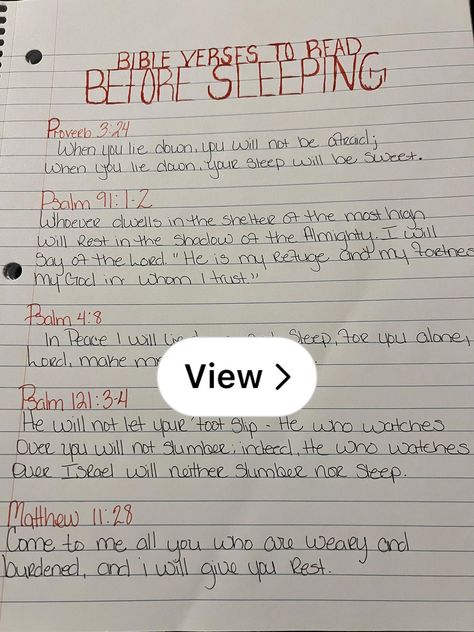 BIBLE VERSES TO READ
BEFORE SLEEPING
Proverb 3:24
When you lie down, you will not be afraid;
When you lie down, your sleep will be sweet.
Psalm 91:1-2
Whoever dwells in the shelter of the most high
will Rest in the shadow of the Almighty. I will
Say of the Lord. "He is my Refuge and my Foetnes
my God in whom I trust."
Psalm 4:8
In Peace I will lie Sleep, For you alone,
Lord, make me
View >
Psalm 121:3-4
He will not let your foot Slip - He who watches
Over you will not slumber; indeed, He who watches
Over Israel will neither Slumber nor Sleep.
Matthew 11:28
Come to me all you who are weary and
burdened, and i will give you Rest.